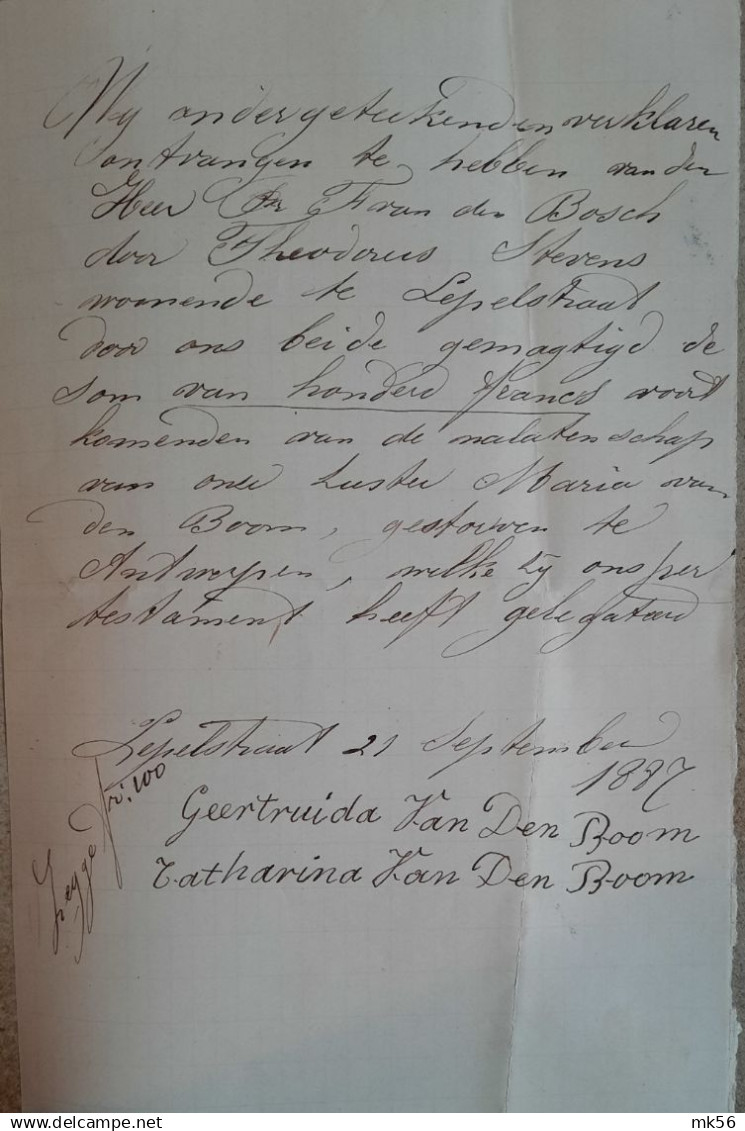 Wij ondergeteekenden verklaren
ontvangen te hebben van den
Heer F van den Bosch
door Theodorus Stevens
woonende te Lepelstraat
door ons beide gemagtigd de
som van honderd francs voort
komenden van de nalatenschap
van onze zuster Maria van
den Boom, gestorven te
Antwerpen, welke zij ons per
testament heeft gelegateerd
Lepelstraat 21 September
1887
Geertruida Van Den Boom
Catharina Van Den Boom
Zegge fr: 100
mk56